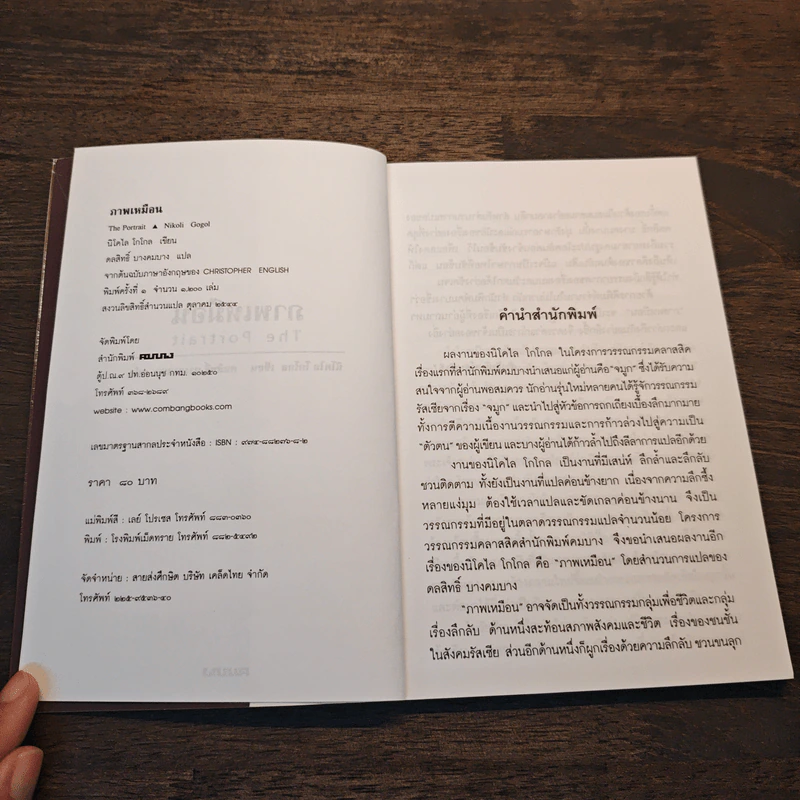 ภาพเหมือน
The Portrait ▲ Nikoli Gogol
นิโคไล โกโกล เขียน
ดลสิทธิ์ บางคมบาง แปล
จากต้นฉบับภาษาอังกฤษของ CHRISTOPHER ENGLISH
พิมพ์ครั้งที่ ๑ จำนวน ๑,๒๐๐ เล่ม
สงวนลิขสิทธิ์สำนวนแปล ตุลาคม ๒๕๔๔
จัดพิมพ์โดย
สำนักพิมพ์ คมบาง
ตู้ ปณ.๙ ปท.อ่อนนุช กทม. ๑๐๒๕๐
โทรศัพท์ ๓๖๘-๒๖๘๙
website : www.combangbooks.com
เลขมาตรฐานสากลประจำหนังสือ : ISBN : ๙๗๔-๘๘๒๓๖-๘-๒
ราคา ๘๐ บาท
แม่พิมพ์สี : เลย์ โปรเซส โทรศัพท์ ๘๘๓-๐๓๖๐
พิมพ์ : โรงพิมพ์เม็ดทราย โทรศัพท์ ๘๘๒-๕๔๙๒
จัดจำหน่าย : สายส่งศึกษิต บริษัท เคล็ดไทย จำกัด
โทรศัพท์ ๒๒๕-๙๕๓๖-๔๐
คำนำสำนักพิมพ์
ผลงานของนิโคไล โกโกล ในโครงการวรรณกรรมคลาสสิค
เรื่องแรกที่สำนักพิมพ์คมบางนำเสนอแก่ผู้อ่านคือ"จมูก" ซึ่งได้รับความ
สนใจจากผู้อ่านพอสมควร นักอ่านรุ่นใหม่หลายคนได้รู้จักวรรณกรรม
รัสเซียจากเรื่อง "จมูก" และนำไปสู่หัวข้อการถกเถียงเบื้องลึกมากมาย
ทั้งการตีความเนื้องานวรรณกรรมและการก้าวล่วงไปสู่ความเป็น
"ตัวตน" ของผู้เขียน และบางผู้อ่านได้ก้าวล้ำไปถึงลีลาการแปลอีกด้วย
งานของนิโคไล โกโกล เป็นงานที่มีเสน่ห์ ลึกล้ำและลึกลับ
ชวนติดตาม ทั้งยังเป็นงานที่แปลค่อนข้างยาก เนื่องจากความลึกซึ้ง
หลายแง่มุม ต้องใช้เวลาแปลและขัดเกลาค่อนข้างนาน จึงเป็น
วรรณกรรมที่มีอยู่ในตลาดวรรณกรรมแปลจำนวนน้อย โครงการ
วรรณกรรมคลาสสิคสำนักพิมพ์คมบาง จึงขอนำเสนอผลงานอีก
เรื่องของนิโคไล โกโกล คือ "ภาพเหมือน" โดยสำนวนการแปลของ
ดลสิทธิ์ บางคมบาง
"ภาพเหมือน" อาจจัดเป็นทั้งวรรณกรรมกลุ่มเพื่อชีวิตและกลุ่ม
เรื่องลึกลับ ด้านหนึ่งสะท้อนสภาพสังคมและชีวิต เรื่องของชนชั้น
ในสังคมรัสเซีย ส่วนอีกด้านหนึ่งก็ผูกเรื่องด้วยความลึกลับ ชวนขนลุก